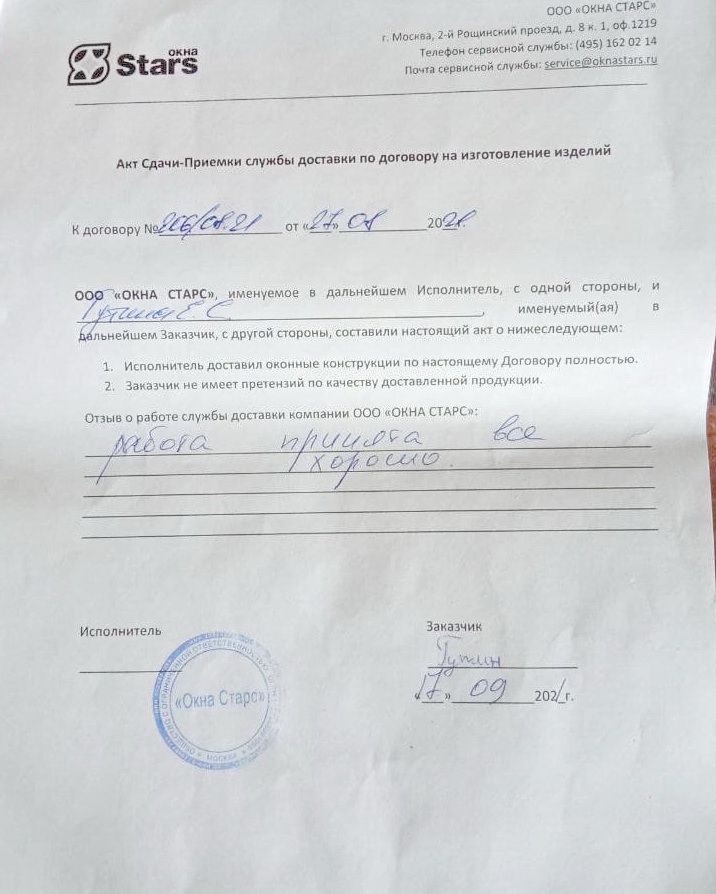 ООО «ОКНА СТАРС»
г. Москва, 2-й Рощинский проезд, д. 8 к. 1, оф.1219
Телефон сервисной службы: (495) 162 02 14
Почта сервисной службы: service@oknastars.ru
ОКНА
Stars
Акт Сдачи-Приемки службы доставки по договору на изготовление изделий
К договору № 206/08.21 от «27» 08 2021.
ООО «ОКНА СТАРС», именуемое в дальнейшем Исполнитель, с одной стороны, и
Е. С. , именуемый(ая) в
дальнейшем Заказчик, с другой стороны, составили настоящий акт о нижеследующем:
1. Исполнитель доставил оконные конструкции по настоящему Договору полностью.
2. Заказчик не имеет претензий по качеству доставленной продукции.
Отзыв о работе службы доставки компании ООО «ОКНА СТАРС»:
работа принята все
хорошо.
Исполнитель
Заказчик
«17» 09 2021 г.
ОБЩЕСТВО С ОГРАНИЧЕННОЙ ОТВЕТСТВЕННОСТЬЮ
«Окна Старс»
МОСКВА